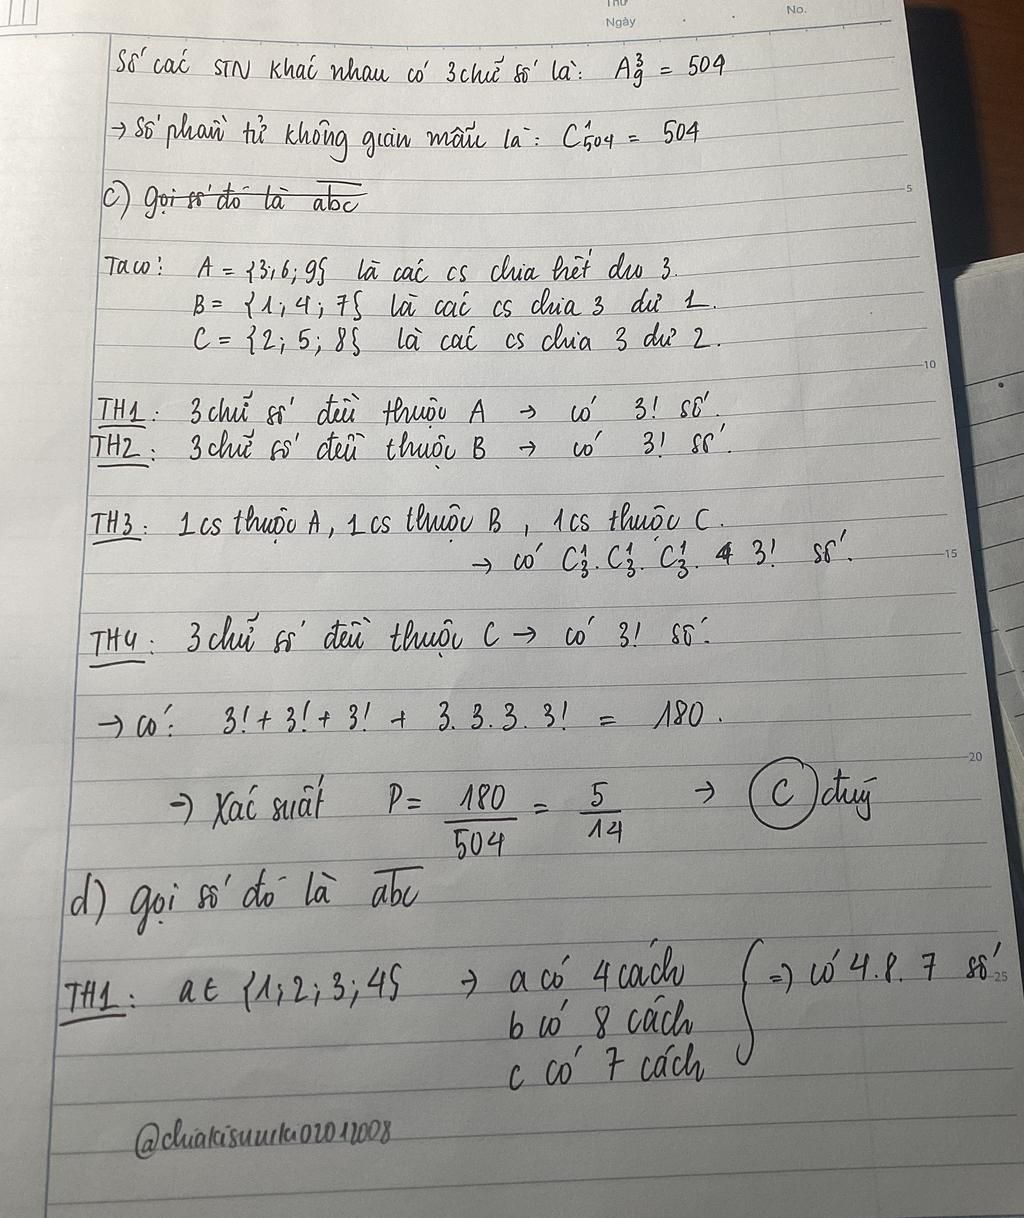 Thứ
Ngày
No.
Số các STN khác nhau có 3 chữ số là: A³₉ = 504
→ Số phần tử không gian mẫu là: C¹₅₀₄ = 504
c) gọi số đó là abc
5
Ta có: A = {3; 6; 9} là các cs chia hết dư 3.
B = {1; 4; 7} là các cs chia 3 dư 1.
C = {2; 5; 8} là các cs chia 3 dư 2.
10
TH1: 3 chữ số đều thuộc A → có 3! số.
TH2: 3 chữ số đều thuộc B → có 3! số.
TH3: 1 cs thuộc A, 1 cs thuộc B, 1 cs thuộc C.
→ có C¹₃. C¹₃. C¹₃. 3! số.
15
TH4: 3 chữ số đều thuộc C → có 3! số.
→ có: 3! + 3! + 3! + 3. 3. 3. 3! = 180.
20
→ Xác suất P = 180/504 = 5/14 → C đúng
d) gọi số đó là abc
TH1: a ∈ {1; 2; 3; 4} → a có 4 cách } => có 4. 8. 7 số
25
b có 8 cách
c có 7 cách